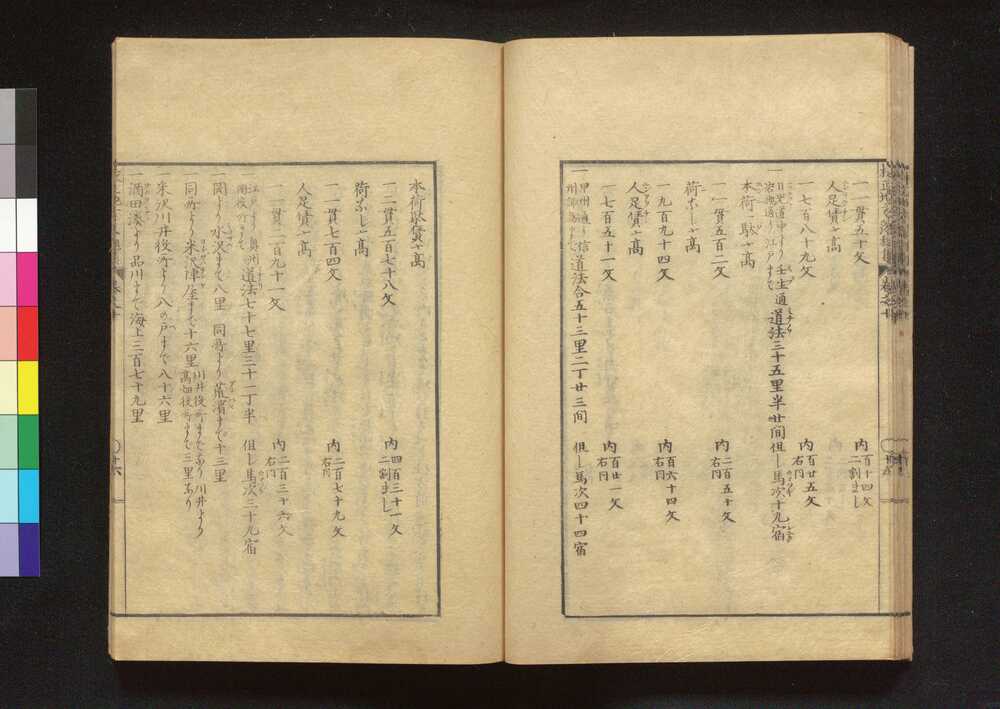 一一貫五十文　内百十四文 二割まし
人足賃〆高
一七百八十九文　内百廿五文 右同
一日光道中より 岩槻通り江戸まで 壬生通 道法三十五里半廿間 但し馬次十九宿
本荷一駄〆高
一一貫五百二文　内二百五十文 右同
荷なし〆高
一九百九十四文　内百六十四文 右同
人足賃〆高
一七百五十一文　内百廿一文 右同
一甲州通り信州 道法合五十三里二丁廿三间　但し馬次四十四宿
本荷駄賃〆高
一二貫五百七十八文　内四百三十一文 二割まし
荷なし〆高
一一貫七百四文　内二百七十九文 右同
人足賃〆高
一一貫二百九十一文　内二百三十六文 右同
一江戸より奥州 関役所まで 道法七十七里三十一丁半　但し馬次三十九宿
一関より水沢まで八里　同所より 荒濱まで十三里
一同所より米沢陣屋まで十六里
一米沢川井役所より八の戸まで八十六里
一酒田湊より品川まで海上三百七十九里